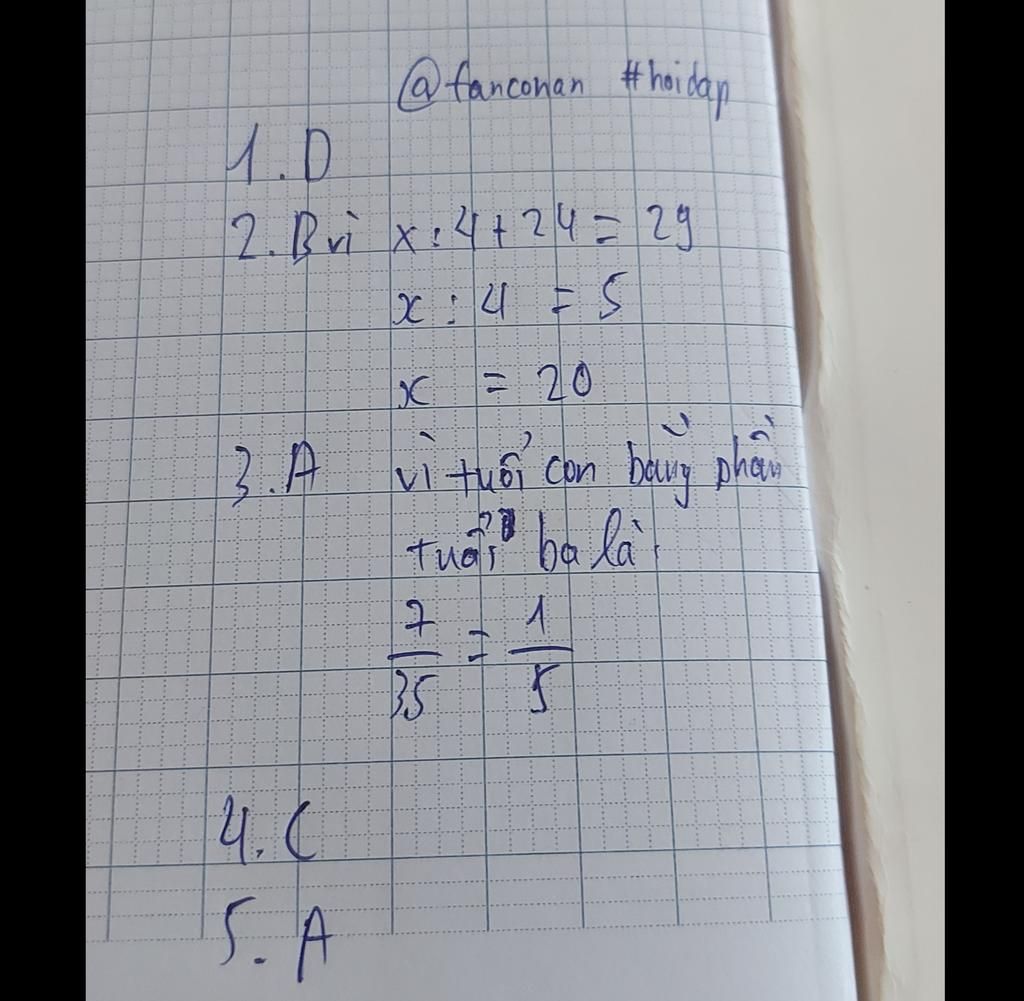 @fanconan #hoidap
1. D
2. B vì x : 4 + 24 = 29
x : 4 = 5
x = 20
3. A vì tuổi con bằng phần
tuổi ba là:
7/35 = 1/5
4. C
5. A